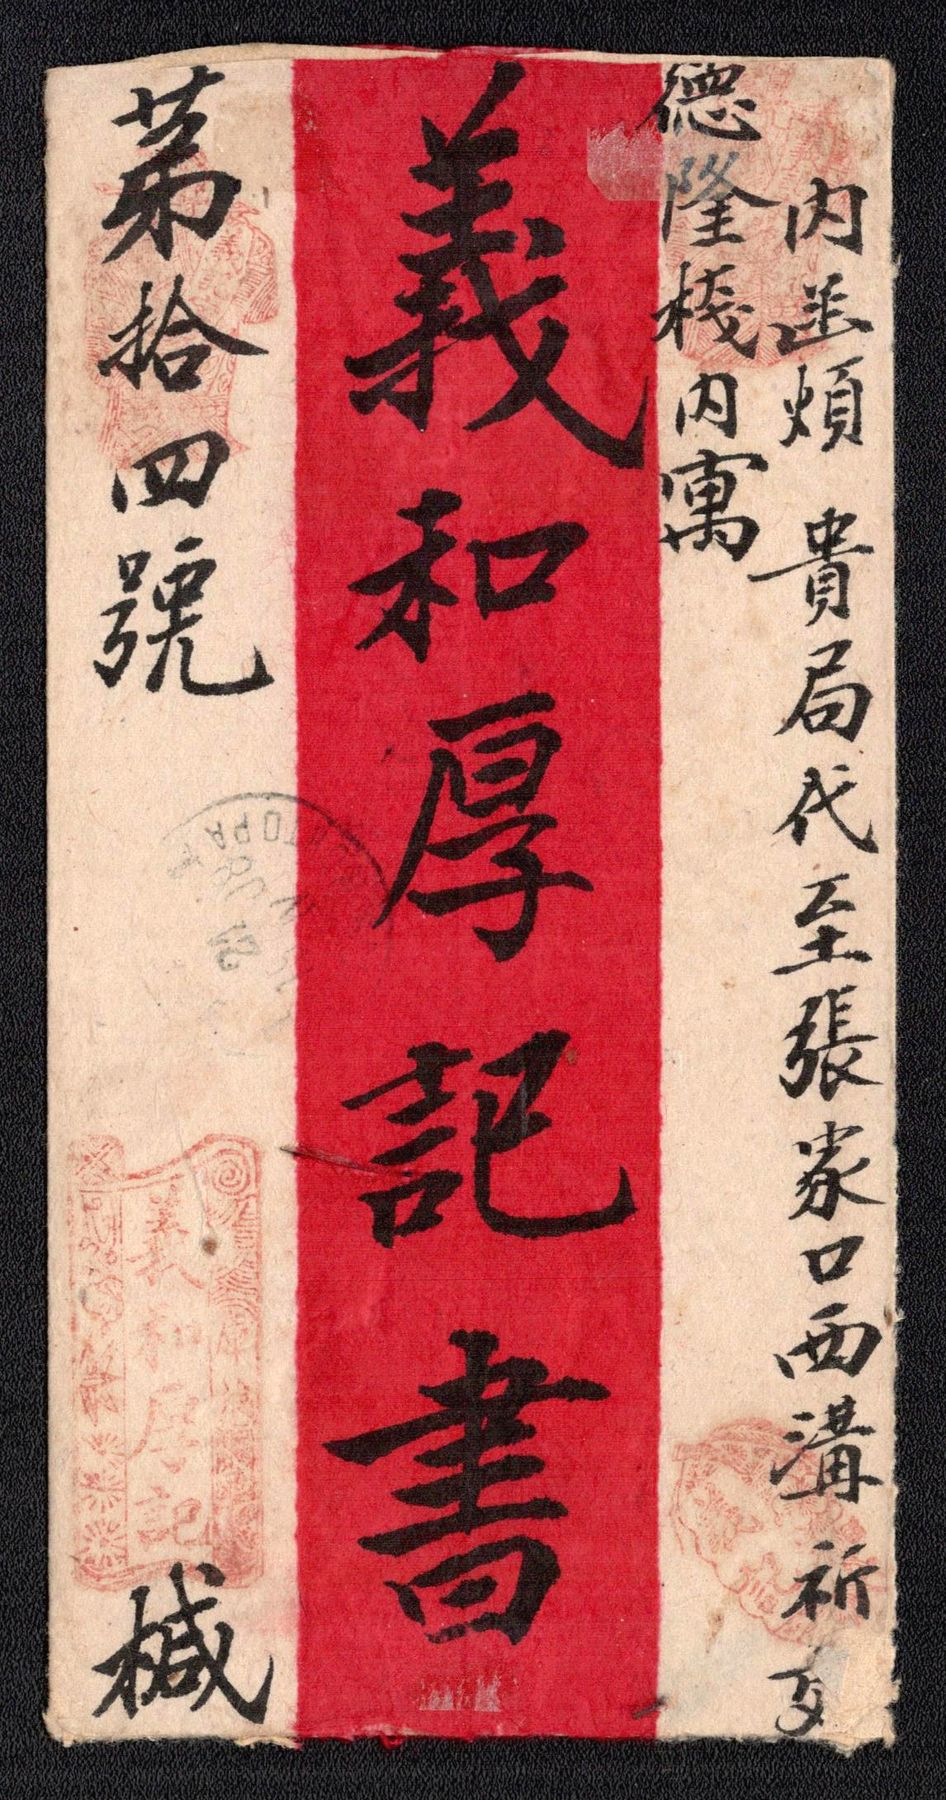 內函煩 貴局代至張家口西溝祈交
德隆棧內寓
義和厚記書
第拾四號
椷
義和厚記